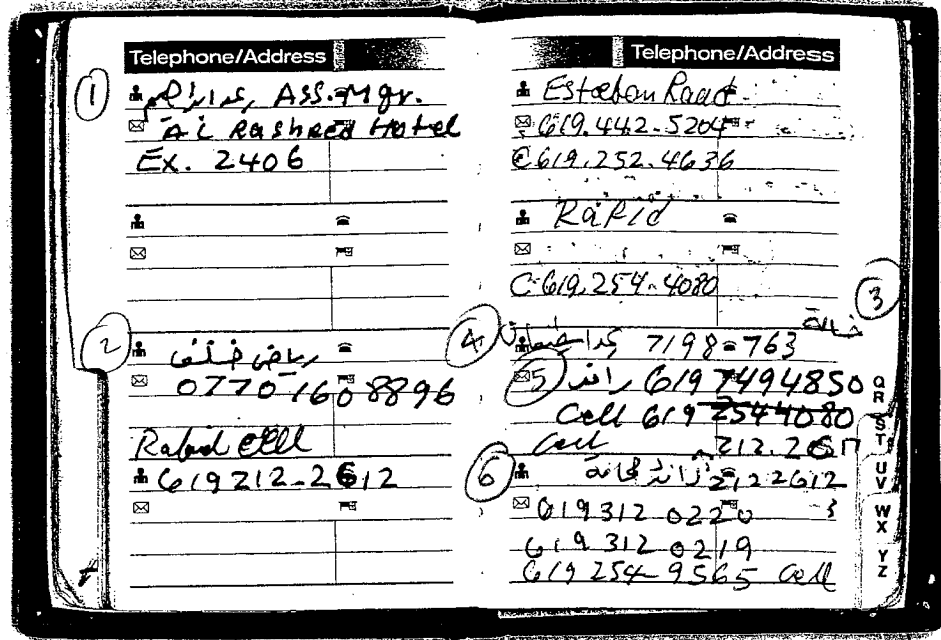 Telephone/Address
1
, Ass. Mgr.
Al Rasheed Hotel
Ex. 2406
2
رياض خلف
0770 160 8896
619 212-2612
Telephone/Address
Esteban
619.442-5204
C 619.252.4636
Rafid
C 619.254-4080
3
خالة
4
7198 763
5
رائد 619 7494850
Cell 619 2544080
Cell 212.2617
6
رائد 2122612
619 312 0220 - 3
619 312 0219
619 254-9565 Cell
QR
ST
UV
WX
YZ